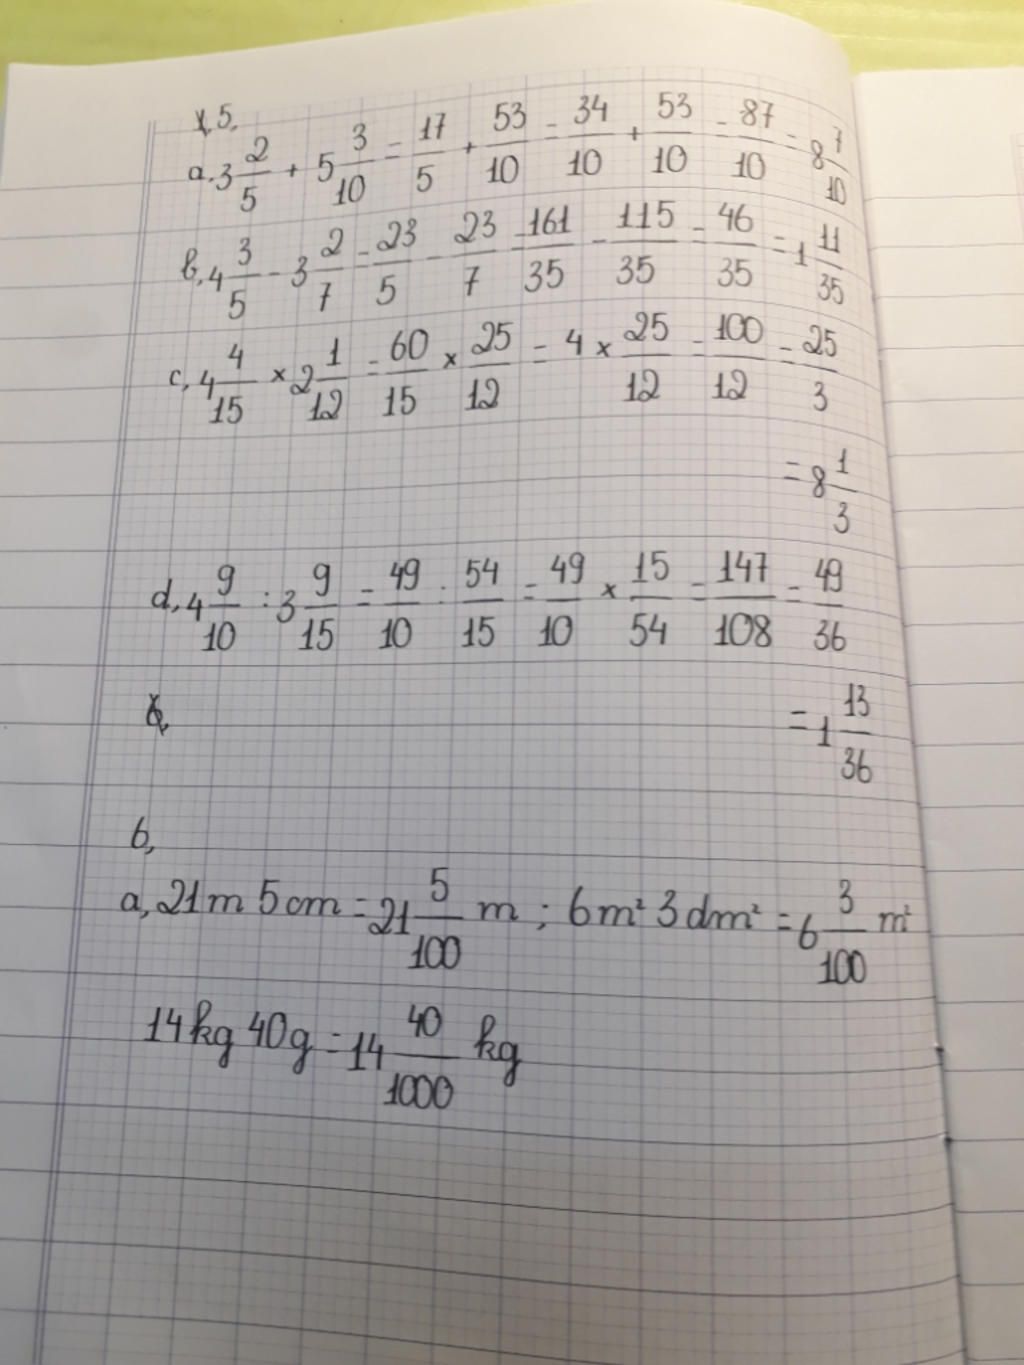 5,
a, 3 2/5 + 5 3/10 = 17/5 + 53/10 = 34/10 + 53/10 = 87/10 = 8 7/10
b, 4 3/5 - 3 2/7 = 23/5 - 23/7 = 161/35 - 115/35 = 46/35 = 1 11/35
c, 4 4/15 × 2 1/12 = 60/15 × 25/12 = 4 × 25/12 = 100/12 = 25/3
= 8 1/3
d, 4 9/10 : 3 9/15 = 49/10 : 54/15 = 49/10 × 15/54 = 147/108 = 49/36
= 1 13/36
6,
a, 21m 5cm = 21 5/100 m ; 6m² 3dm² = 6 3/100 m²
14kg 40g = 14 40/1000 kg